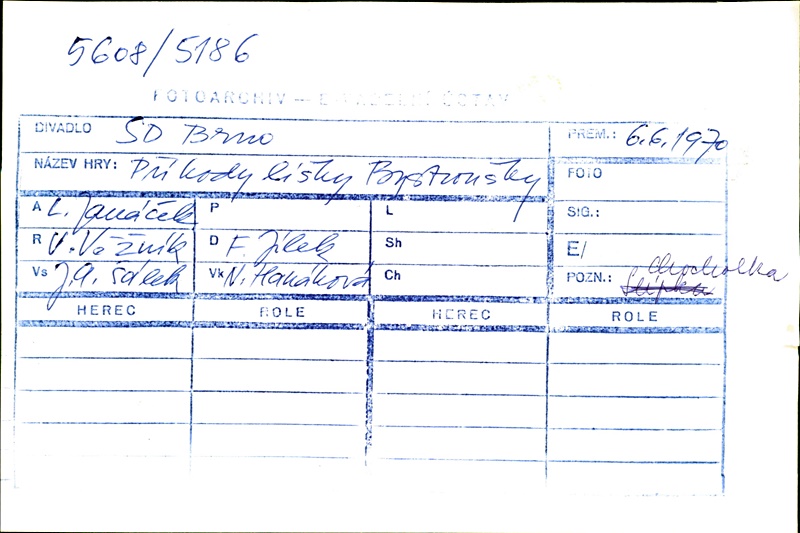 5608/5186
FOTOARCHIV — DIVADELNÍ ÚSTAV
DIVADLO SD Brno PREM.: 6.6.1970
NÁZEV HRY: Příhody lišky Bystroušky FOTO
A L. Janáček P L SIG.:
R V. Věžník D F. Jílek Sh E/
Vs J.A. Šálek Vk N. Hanáková Ch POZN.: Chocholka
HEREC ROLE HEREC ROLE